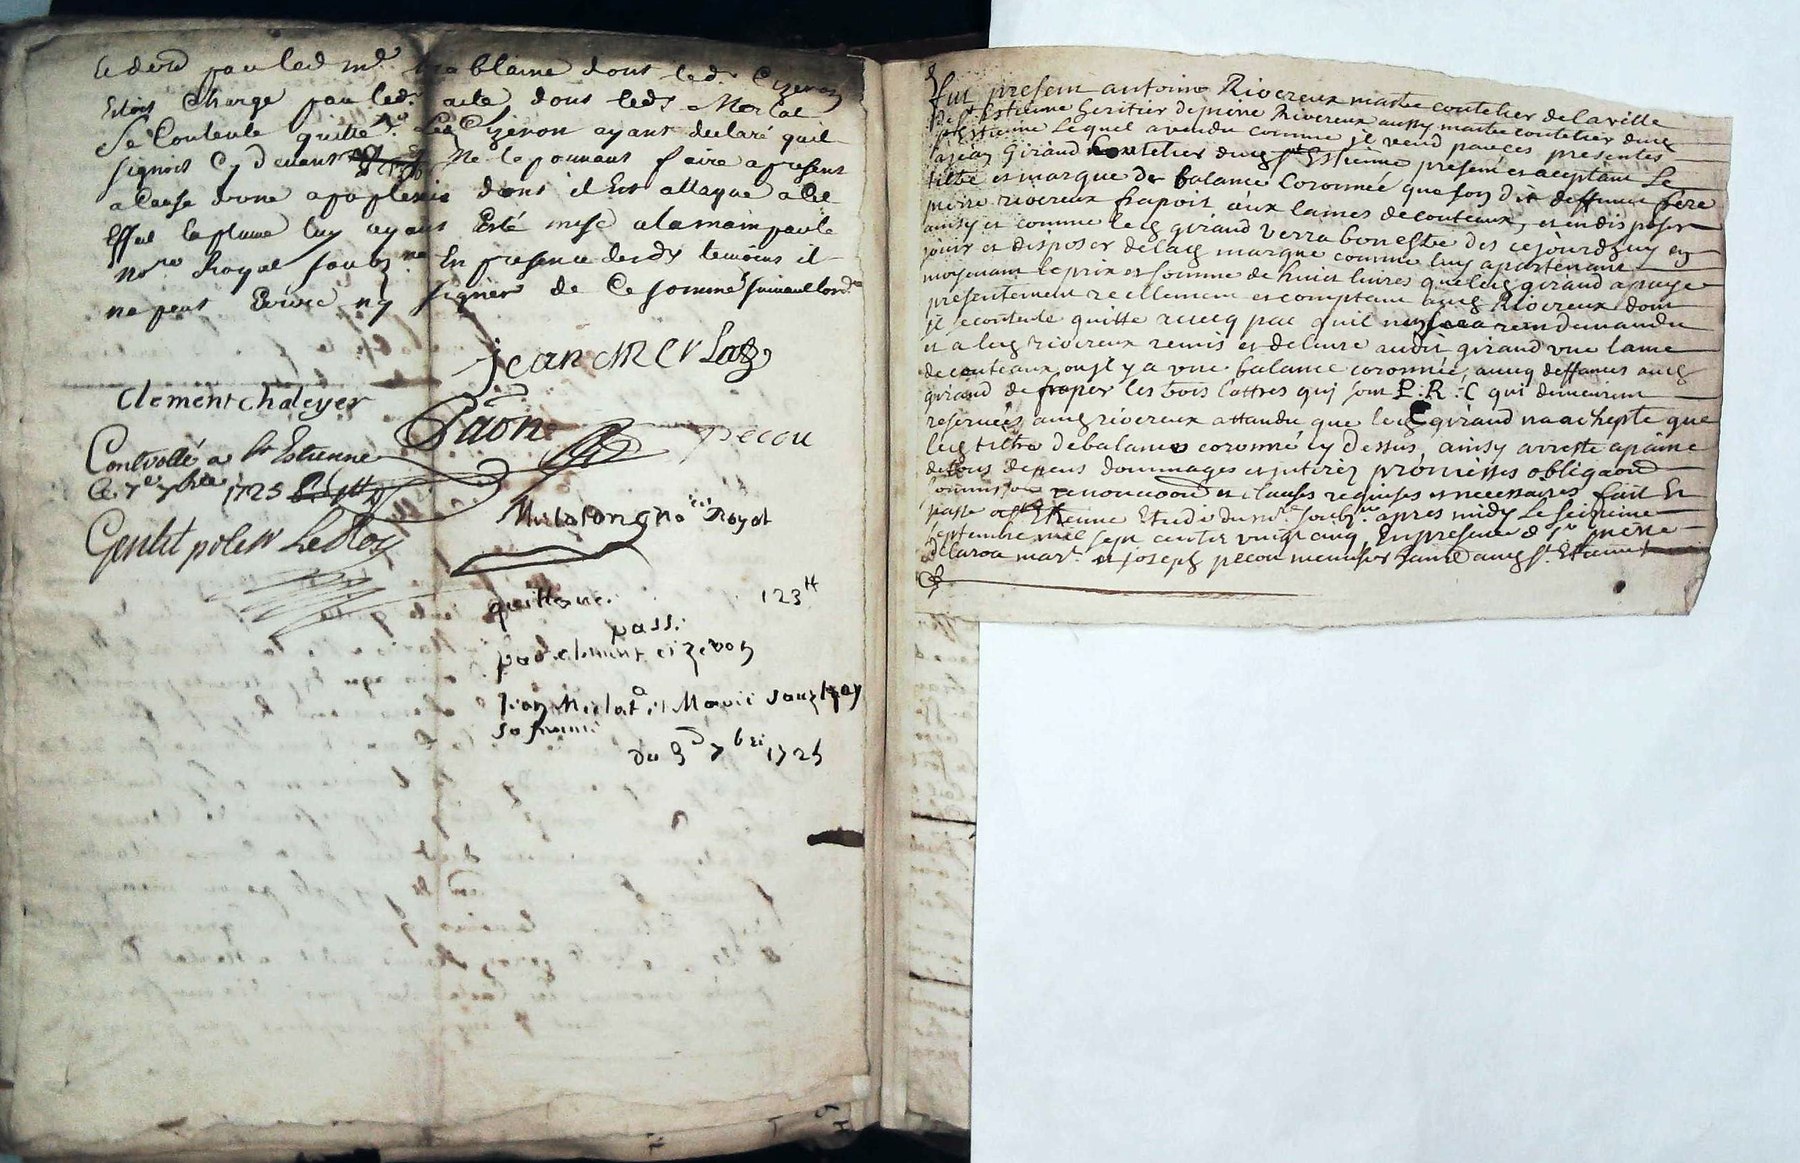 par led md blaine dont led Cizeron
Estoit Charge par led acte dont leds Merlat
Se Contente quitte led Cizeron ayant declaré quil
signoit Cy devant Ne le pouvant faire apresent
a Cause d'une apoplexie dont il Est attaque a Cet
Effet la plume luy ayant Esté mise a la main par le
nore Royal soubzne En presence desds temoins il
ne peut Ecrire ny signer de Ce somme suivant lord
jean Merlat
Clement chaleyer
Paön
pecou
Controllé a st Estienne
le 7e 7bre 1725
Mulatong no re Royal
Gentet pour Le Roy
quittance. 123 tt
pass.
par clement cizeron
Jean Merlat et Marie Sauzeay
sa femme
du 5 7bre 1725
Fut present antoine Rivereux maitre coutelier de la ville
de st Estienne heritier de pierre Riverieux aussy maitre coutelier dud
st Estienne Lequel a vendu comme il vend par ces presentes
a jean Giraud Coutelier dud st Estienne present et aceptant Le
tiltre et marque de balance Coronnée que son dit deffunt père
pierre riverieux frapoit aux lames de couteaux, et en disposer
ainsy et comme led giraud verra bon estre des cejourdhuy en
jouir et disposer de lad marque comme luy apartenant
moyenant le prix et somme de huict livres que led giraud a paye
presentement reellement et comptant aud Riverieux dont
il se contente quitte avecq pac quil ne sera rien demandé
et a led riverieux remis et delivré audit giraud une lame
de couteaux ou il y a une balance coronnée, avecq deffances aud
giraud de fraper les trois lattres qui sont P : R : C qui demeurent
reservées aud riverieux attandu que led giraud na achepte que
led tiltre de balance coronné cy dessus, ainsy arresté a paine
de tous depens dommages et interez promesses obligaon
soumission renonciaon et clauses requises et necessaires fait et
passe a st Etienne Etude du nre soubzne apres midy Le seizieme
septembre mil sept cents vingt cinq, En presence de sr pierre
delaroa mart et joseph pecou menuisier habt aud st Etienne